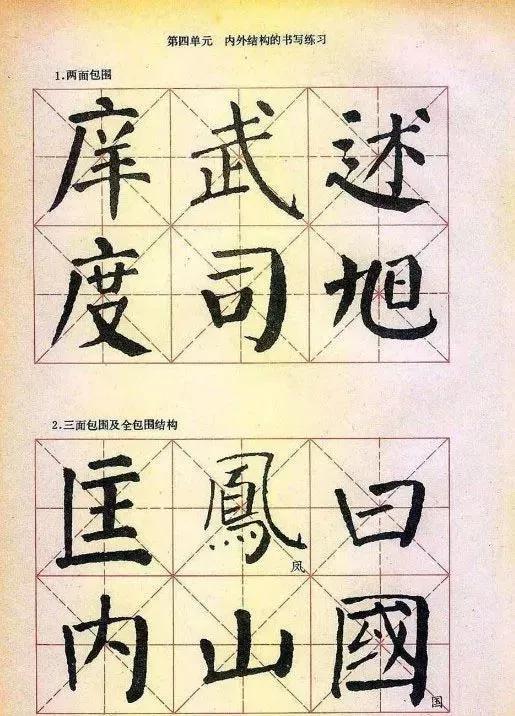 第四单元 内外结构的书写练习
1.两面包围
庠武述
度司旭
2.三面包围及全包围结构
匡鳳曰
凤
内山國
国